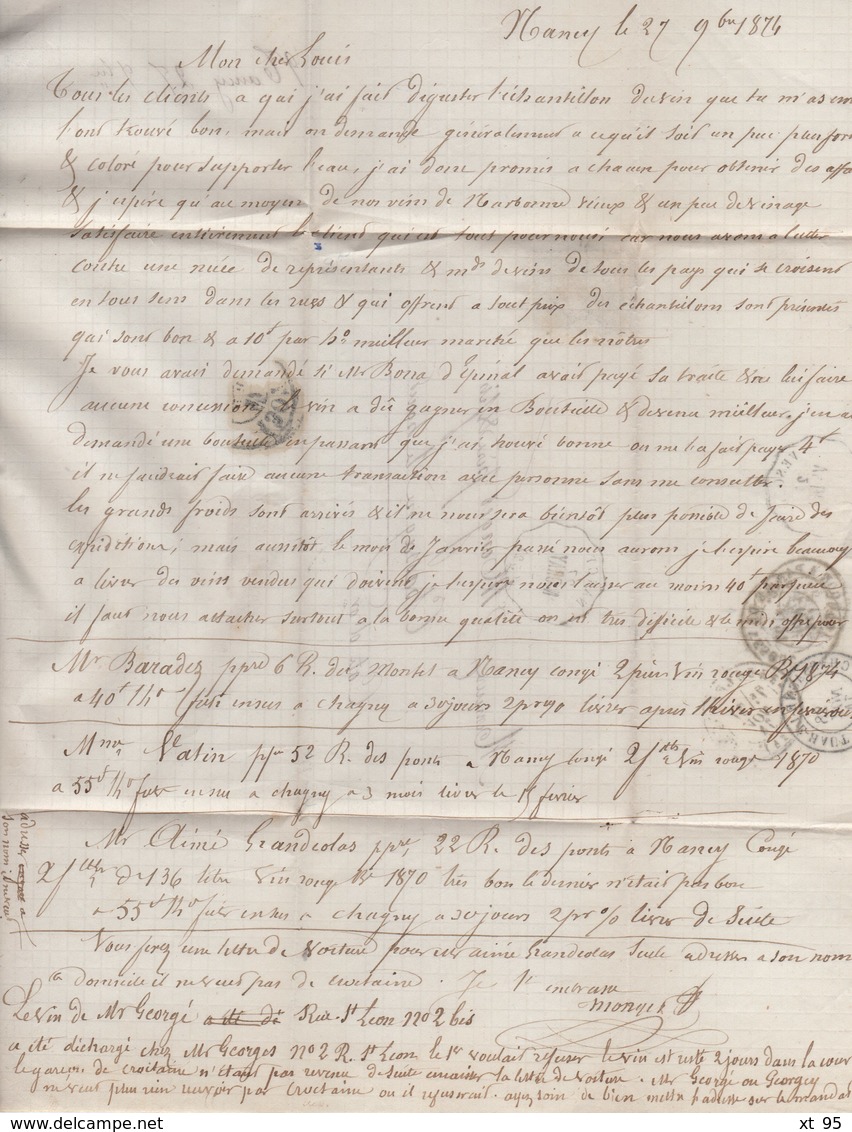 Nancy le 27 9bre 1874
Mon cher Louis
Tous les clients a qui j'ai fait déguster l'échantillon du vin que tu m'as
l'ont trouvé bon, mais on demande généralement a ce qu'il soit un peu plus
& coloré pour supporter l'eau, j'ai donc promis a chacun pour obtenir des
& j'espère qu'au moyen de nos vins de Narbonne vieux & un peu de vinage
satisfaire entièrement le client qui est tout pour nous car nous avons a lutter
contre une nuée de représentants & mds de vins de tous les pays qui se croisent
en tous sens dans les rues & qui offrent a tout prix des échantillons sont présentés
qui sont bon & a 10f par ho meilleur marché que les nôtres
Je vous avais demandé si Mr Bona d'Epinal avait payé sa traite & ne lui faire
aucune concession, le vin a dû gagner en Bouteille & devenu meilleur, j'en ai
demandé une bouteille en passant que j'ai trouvé bonne on me l'a fait payer 4f
il ne faudrait faire aucune transaction avec personne sans me consulter.
les grands froids sont arrivés & il ne nous sera bientôt plus possible de faire des
expéditions, mais aussitôt le mois de Janvier passé nous aurons je l'espère beaucoup
a livrer des vins vendus qui doivent je l'espère nous laisser au moins 40f par pièce
il faut nous attacher surtout a la bonne qualité on est très difficile & le midi offre pour
Mr Baradez ppre 6 R. du Montet a Nancy congé 2 pièces vin rouge 1874
a 40f ho fûts en sus a chagny a 30 jours 2 pr % livrer après l'hiver en février
Mme Vatin ppre 52 R. des ponts a Nancy congé 2f vin rouge 1870
a 55f ho futs en sus a chagny a 3 mois livrer le 15 février
Mr Aimé Grandcolas ppre, 22 R. des ponts a Nancy Congé
2f de 136 litres vin rouge 1870 très bon le dernier n'était pas bon
a 55f ho futs en sus a chagny a 30 jours 2 pr % livrer de suite
adresser a
son nom il ne veut
Vous ferez une lettre de voiture pour Mr aimé Grandcolas seule adressée a son nom
a domicile il ne veut pas de Croctaine. Je t'embrasse
Monget
Le vin de Mr Georgé Rue St Léon No 2 bis
a été déchargé chez Mr Georges No 2 R. St Léon le 1er voulait refuser le vin est resté 2 jours dans la cour
le garçon de croctaine n'étant pas revenu de suite encaisser la lettre de voiture. Mr Georgé ou Georgey
ne veut plus rien recevoir par Croctaine ou il refuserait. ayez soin de bien mettre l'adresse sur le mandat
xt 95